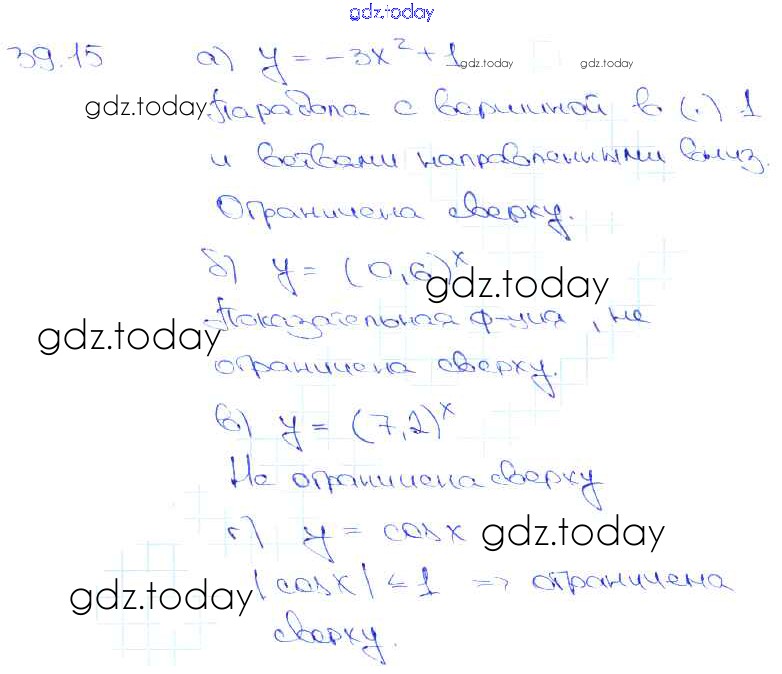 gdz.today
39.15 а) y = -3x² + 1
gdz.today gdz.today
gdz.today Парабола с вершиной в (·) 1
и ветвями направленными вниз.
Ограничена сверху.
б) y = (0,6)^x
gdz.today
Показательная ф-ция, не
gdz.today
ограничена сверху.
в) y = (7,2)^x
Не ограничена сверху
г) y = cosx gdz.today
|cosx| ≤ 1 => ограничена
gdz.today
сверху.